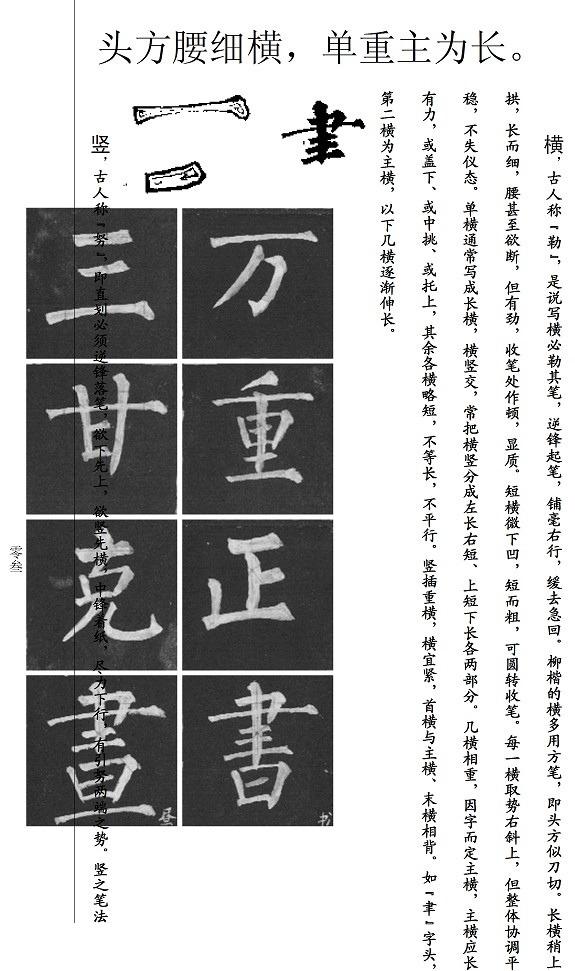 头方腰细横，单重主为长。
横，古人称『勒』，是说写横必勒其笔，逆锋起笔，铺毫右行，缓去急回。柳楷的横多用方笔，即头方似刀切。长横稍上
拱，长而细，腰甚至欲断，但有劲，收笔处作顿，显质。短横微下凹，短而粗，可圆转收笔。每一横取势右斜上，但整体协调平
稳，不失仪态。单横通常写成长横，横竖交，常把横竖分成左长右短、上短下长各两部分。几横相重，因字而定主横，主横应长
有力，或盖下、或中挑、或托上，其余各横略短，不等长，不平行。竖插重横，横宜紧，首横与主横、末横相背。如『聿』字头，
第二横为主横，以下几横逐渐伸长。
聿
万
重
正
書
书
三
甘
克
晝
昼
竖，古人称『努』，即直划必须逆锋落笔，欲下先上，欲竖先横，中锋着纸，尽力下行，有引努两端之势。竖之笔法
零叁